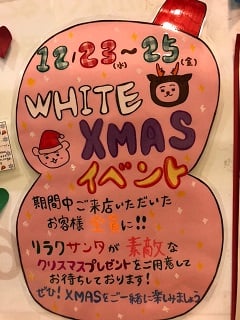 12/23(水)～25(金)
WHITE
XMAS
イベント
期間中ご来店いただいた
お客様全員に!!
リラクサンタが素敵な
クリスマスプレゼントをご用意して
お待ちしております!
ぜひ!XMASをご一緒に楽しみましょう